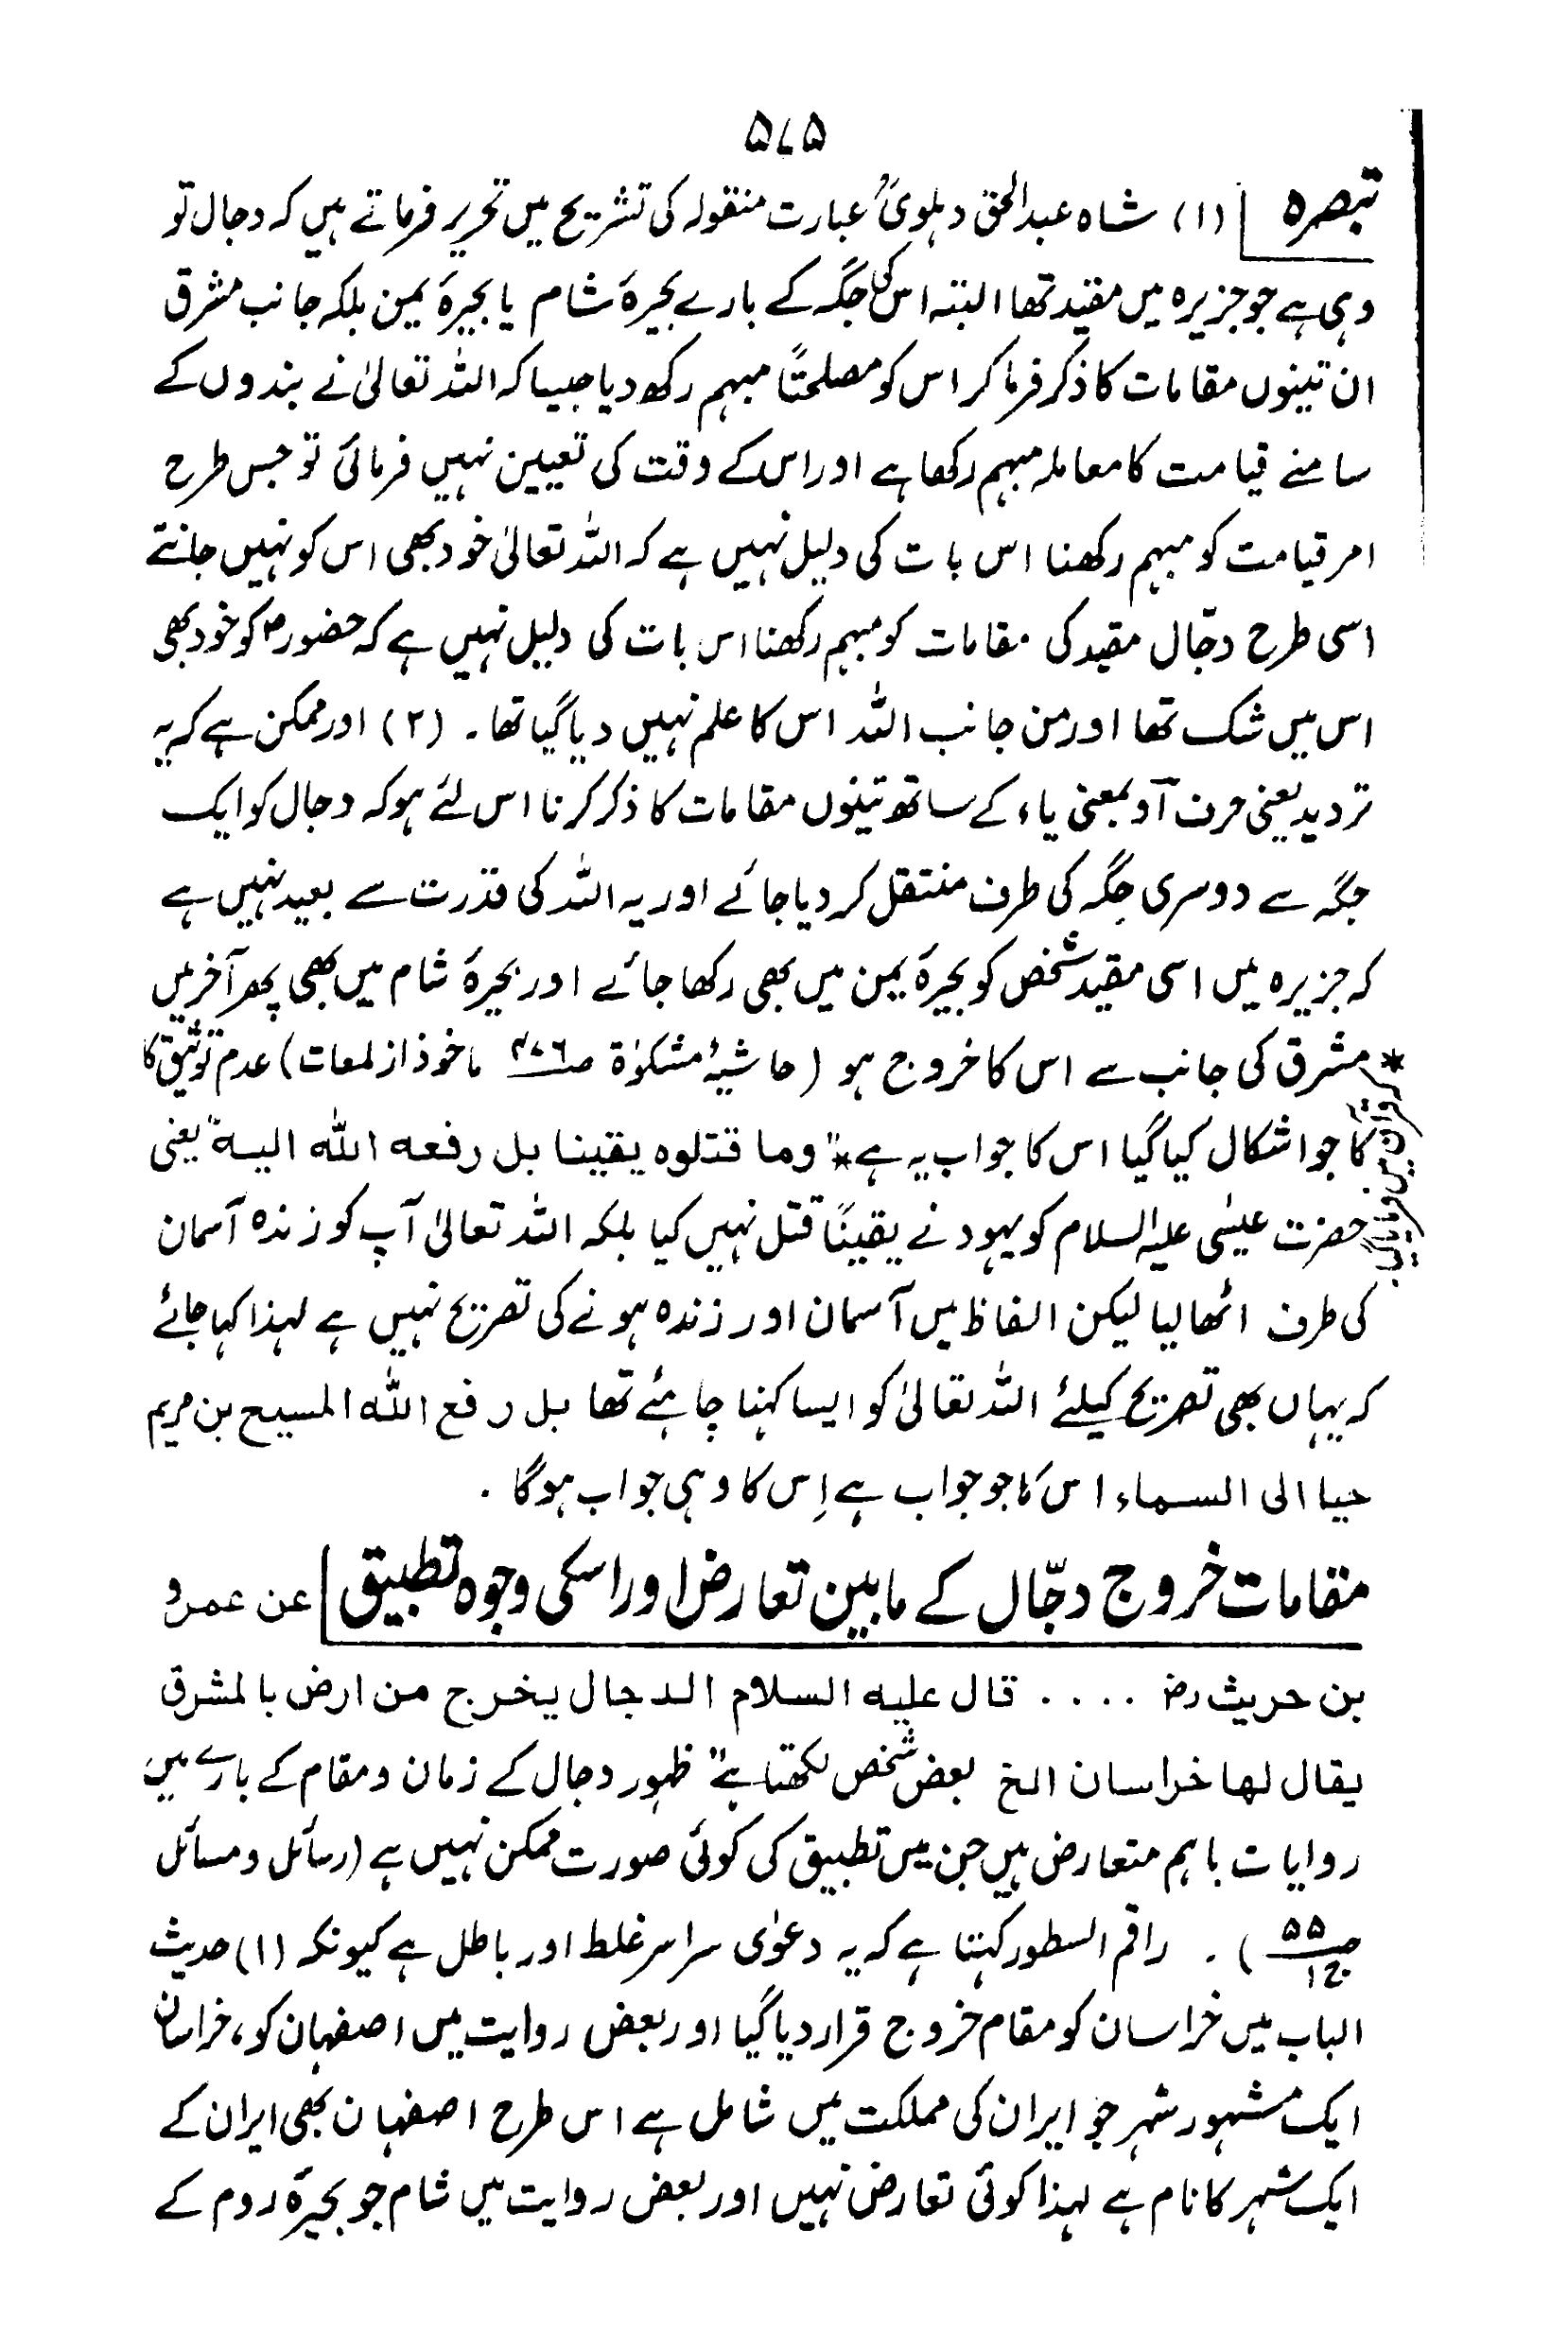 ۵۷۵
تبصرہ (۱) شاہ عبدالحق دہلویؒ عبارت منقولہ کی تشریح میں تحریر فرماتے ہیں کہ دجال تو
وہی ہے جو جزیرہ میں مقید تھا البتہ اس کی جگہ کے بارے بحیرۂ شام یا بحیرۂ یمن بلکہ جانب مشرق
ان تینوں مقامات کا ذکر فرما کر اس کو مصلحتاً مبہم رکھ دیا جیسا کہ اللہ تعالیٰ نے بندوں کے
سامنے قیامت کا معاملہ مبہم رکھا ہے اور اس کے وقت کی تعیین نہیں فرمائی تو جس طرح
امر قیامت کو مبہم رکھنا اس بات کی دلیل نہیں ہے کہ اللہ تعالیٰ خود بھی اس کو نہیں جانتے
اسی طرح دجّال مقید کی مقامات کو مبہم رکھنا اس بات کی دلیل نہیں ہے کہ حضورؐ کو خود بھی
اس میں شک تھا اور من جانب اللہ اس کا علم نہیں دیا گیا تھا ۔ (۲) اور ممکن ہے کہ یہ
تردید یعنی حرف آو بمعنی یاء کے ساتھ تینوں مقامات کا ذکر کرنا اس لئے ہو کہ دجال کو ایک
جگہ سے دوسری جگہ کی طرف منتقل کر دیا جائے اور یہ اللہ کی قدرت سے بعید نہیں ہے
کہ جزیرہ میں اسی مقید شخص کو بحیرۂ یمن میں بھی رکھا جائے اور بحیرۂ شام میں بھی پھر آخر میں
* مشرق کی جانب سے اس کا خروج ہو (حاشیۂ مشکوٰۃ ص۴۷۶ ماخوذ از لمعات) عدم توثیق کا
کا جو اشکال کیا گیا اس کا جواب یہ ہے* "وما قتلوہ یقینا بل رفعہ اللہ الیہ" یعنی
* قرآن میں فرمایا گیا
حضرت عیسٰی علیہ السلام کو یہود نے یقیناً قتل نہیں کیا بلکہ اللہ تعالیٰ آپ کو زندہ آسمان
کی طرف اٹھالیا لیکن الفاظ میں آسمان اور زندہ ہونے کی تصریح نہیں ہے لہذا کہا جائے
کہ یہاں بھی تصریح کیلئے اللہ تعالیٰ کو ایسا کہنا چاہئے تھا بل رفع اللہ المسیح بن مریم
حیا الی السماء اس کا جو جواب ہے اِس کا وہی جواب ہوگا ۔
مقامات خروج دجّال کے مابین تعارض اور اسکی وجوہ تطبیق عن عمرو
بن حریث رض .... قال علیہ السلام الدجال یخرج من ارض بالمشرق
یقال لھا خراسان الخ بعض شخص لکھتا ہے "ظہور دجال کے زمان و مقام کے بارے میں
روایات باہم متعارض ہیں جن میں تطبیق کی کوئی صورت ممکن نہیں ہے (رسائل و مسائل
ص۵۵ ج۱) ۔ راقم السطور کہتا ہے کہ یہ دعوٰی سراسر غلط اور باطل ہے کیونکہ (۱) حدیث
الباب میں خراسان کو مقام خروج قرار دیا گیا اور بعض روایت میں اصفہان کو، خراسان
ایک مشہور شہر جو ایران کی مملکت میں شامل ہے اس طرح اصفہان بھی ایران کے
ایک شہر کا نام ہے لہذا کوئی تعارض نہیں اور بعض روایت میں شام جو بحیرۂ روم کے